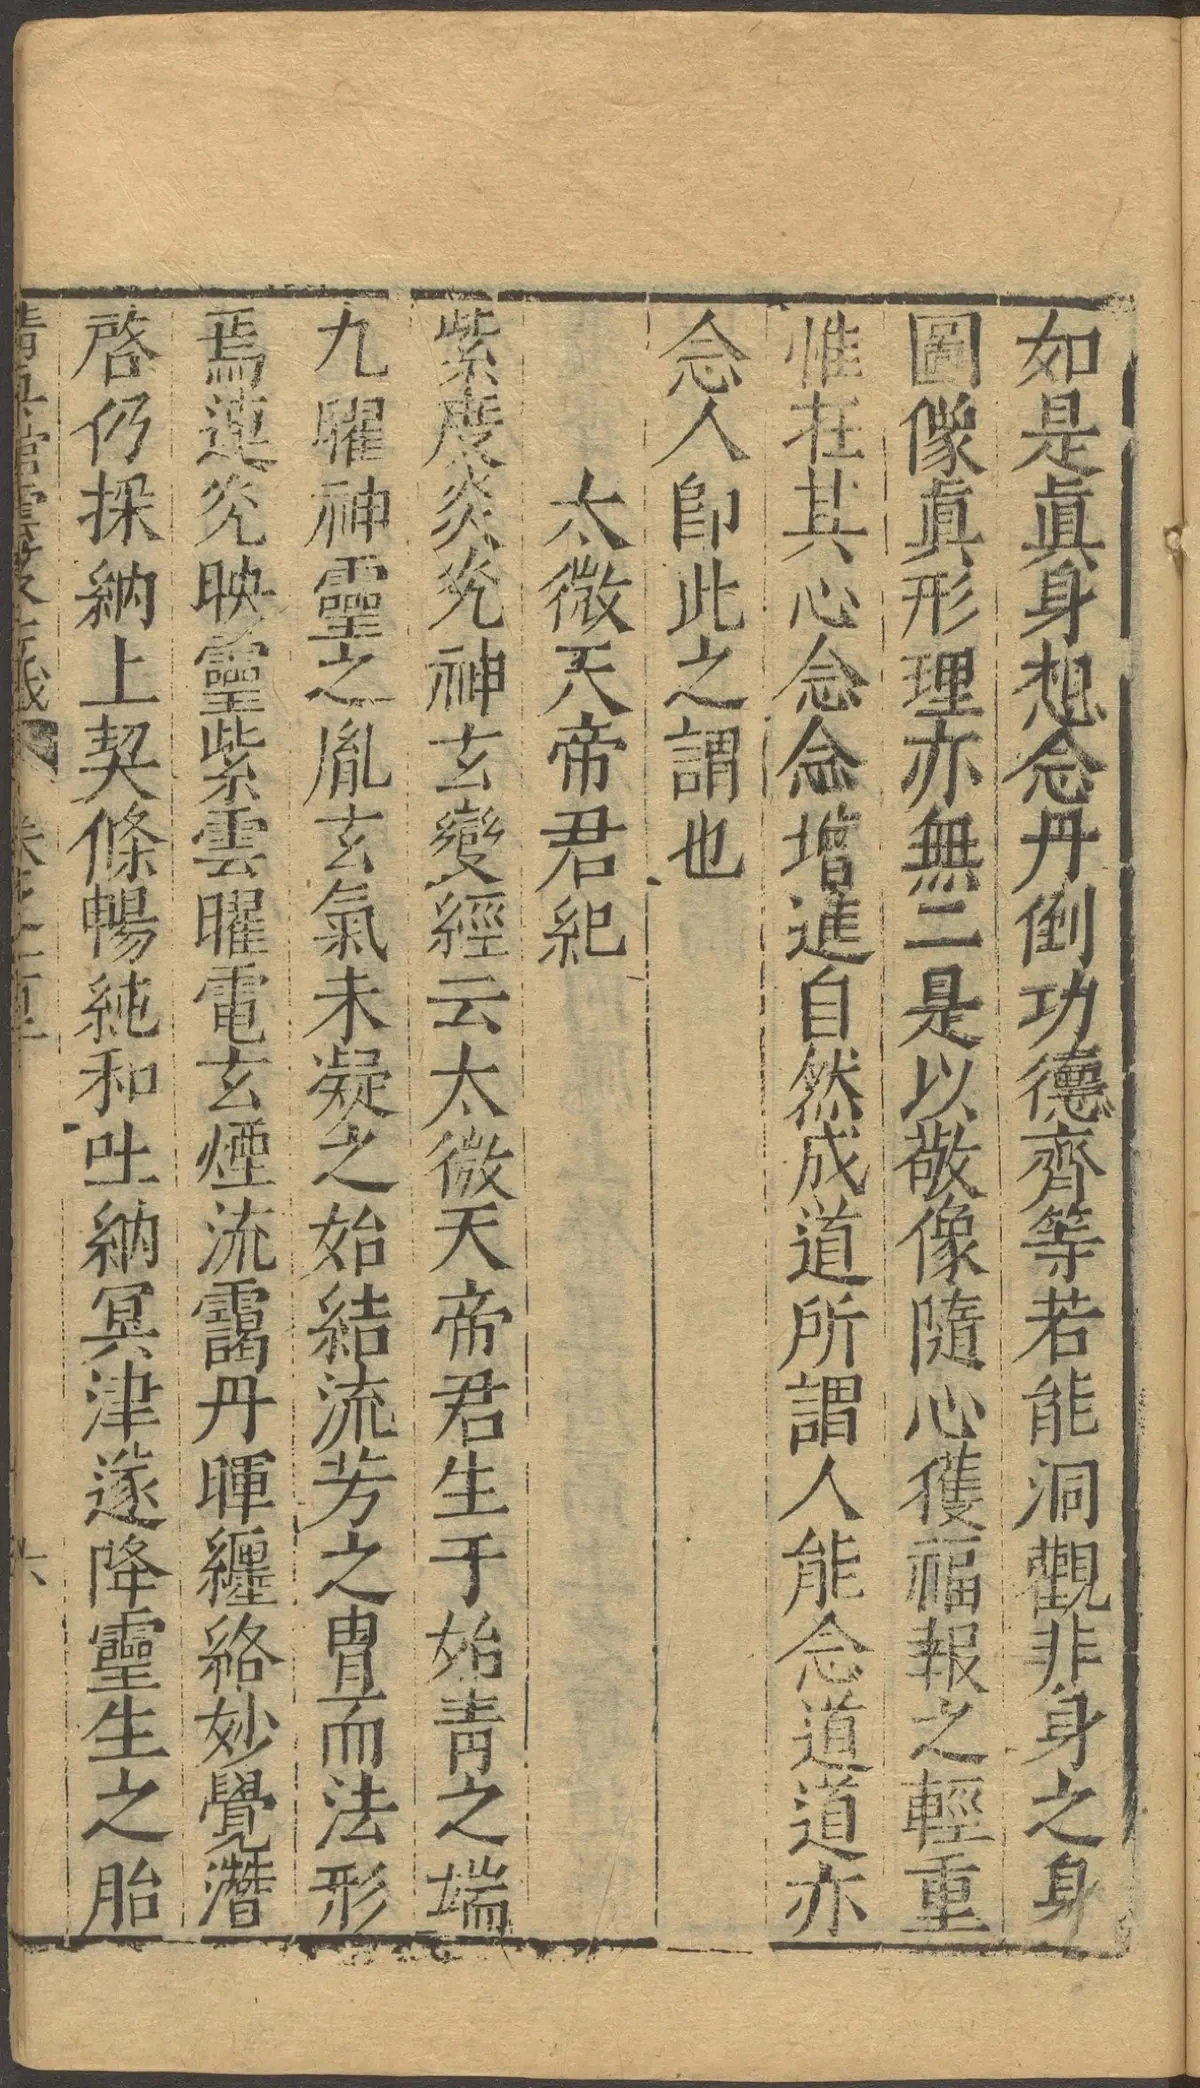 如是眞身想念丹倒功德齊等若能洞觀非身之身
圖像眞形理亦無二是以敬像隨心獲福報之輕重
惟在其心念念增進自然成道所謂人能念道道亦
念人卽此之謂也
太微天帝君紀
紫度炎光神玄變經云太微天帝君生于始青之端
九曜神靈之胤玄氣未凝之始結流芳之胄而法形
焉蓮光映靈紫雲曜電玄煙流靄丹暉纏絡妙覺潛
啓仍採納上契條暢純和吐納冥津遂降靈生之胎
六